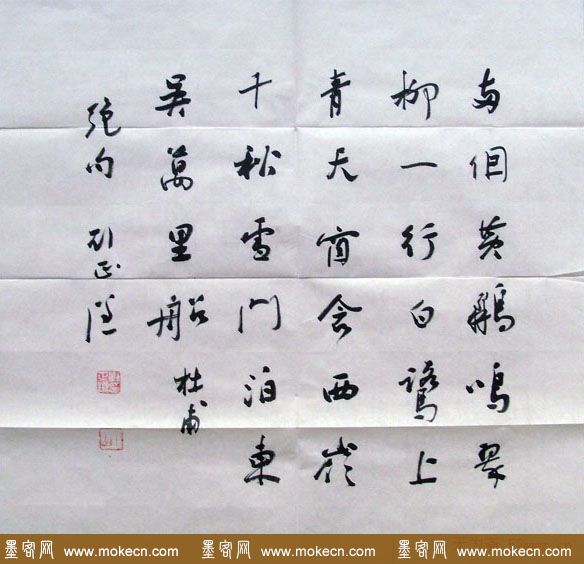 两個黄鸝鳴翠
柳一行白鷺上
青天窗含西嶺
千秋雪門泊東
吴萬里船 杜甫
绝句
墨客网 www.mokecn.com 墨客网 www.mokecn.com 墨客网 www.mokecn.com